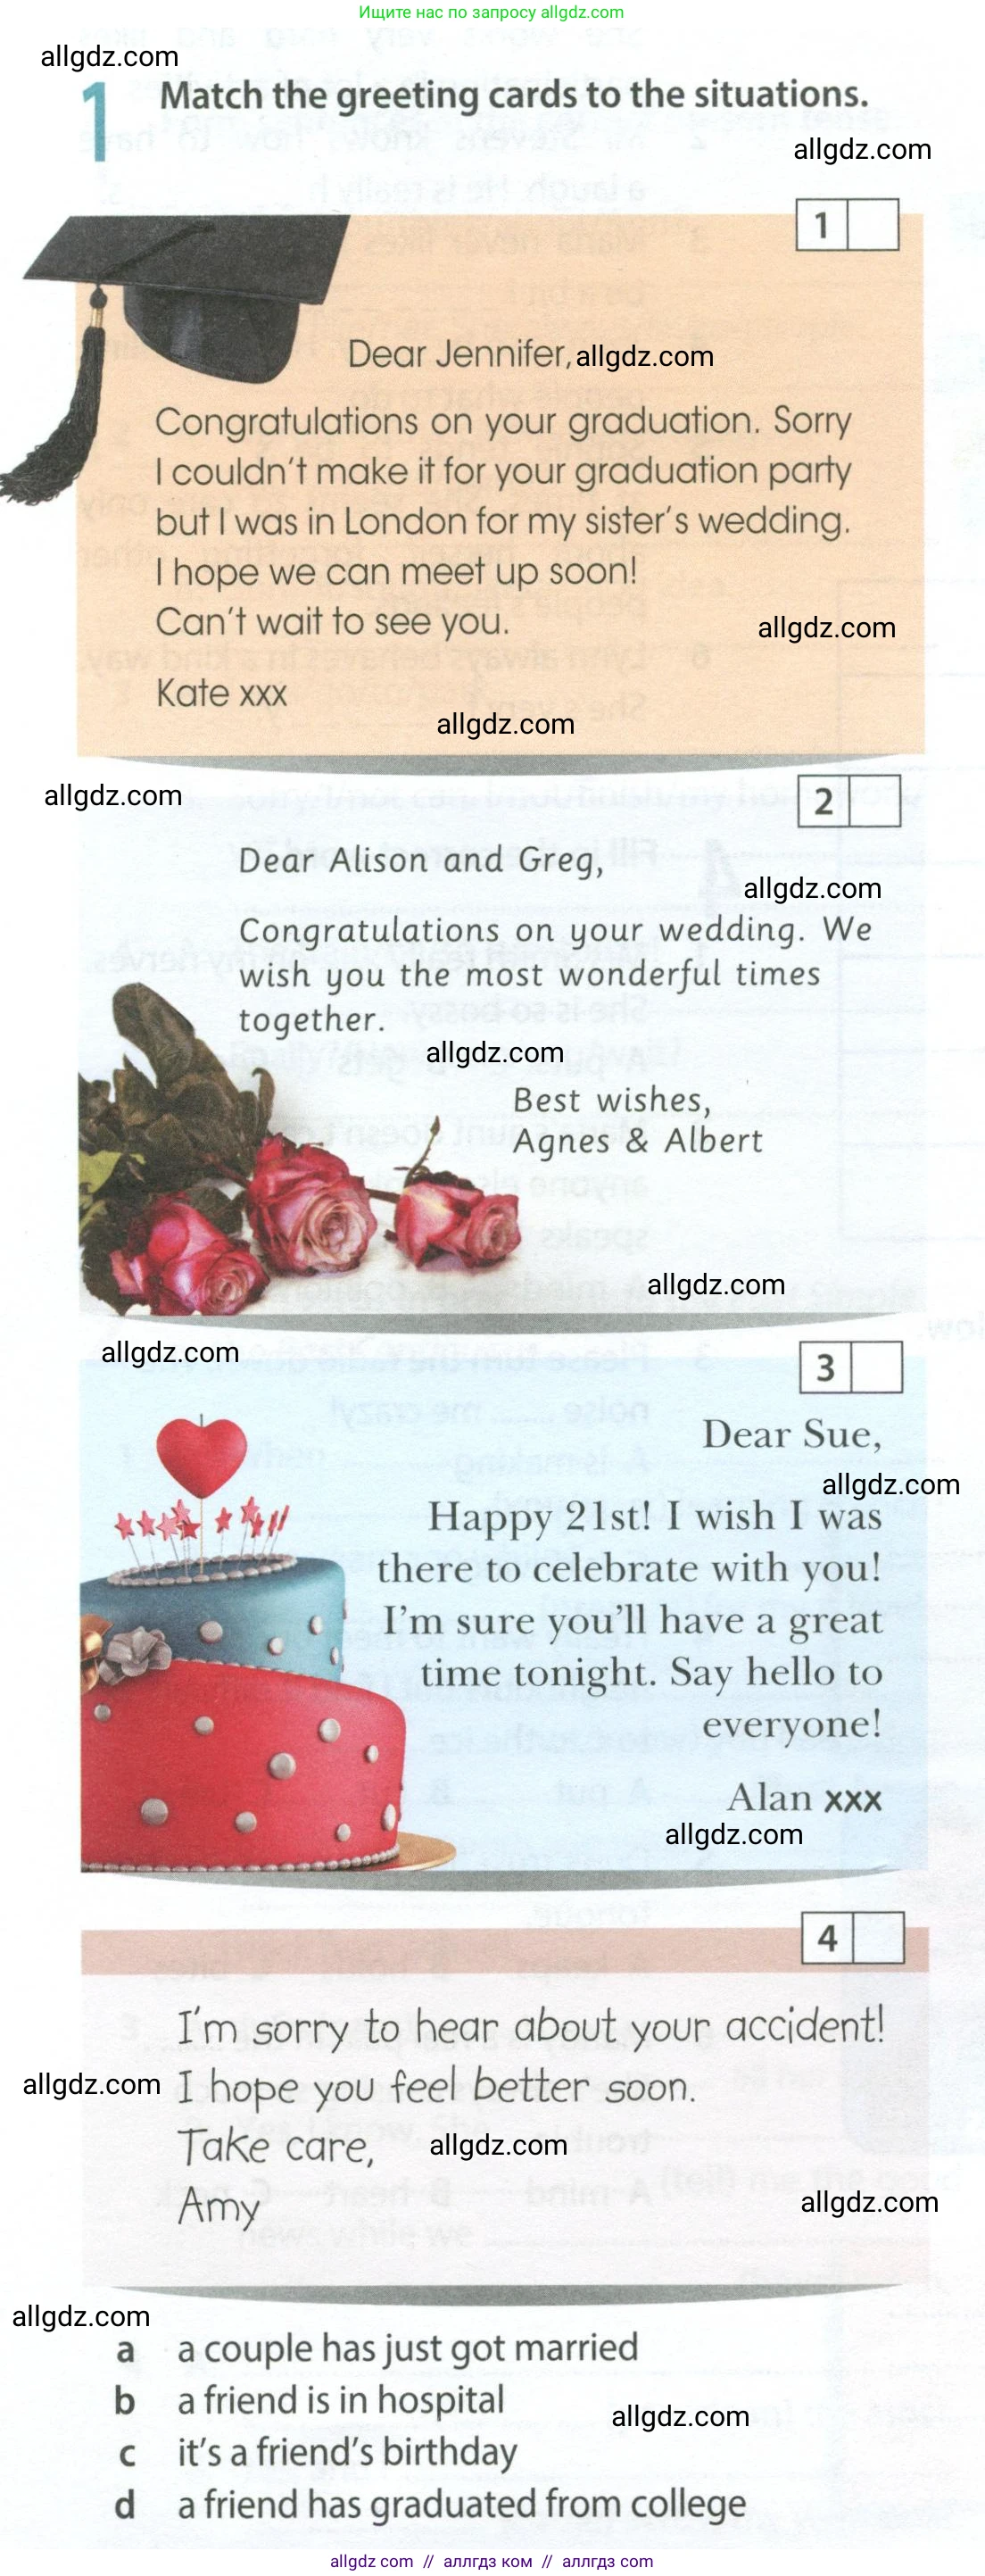 Ищите нас по запросу allgdz.com
allgdz.com
1 Match the greeting cards to the situations.
allgdz.com
1
Dear Jennifer, allgdz.com
Congratulations on your graduation. Sorry
I couldn't make it for your graduation party
but I was in London for my sister's wedding.
I hope we can meet up soon!
Can't wait to see you.
allgdz.com
Kate xxx
allgdz.com
allgdz.com
2
Dear Alison and Greg,
allgdz.com
Congratulations on your wedding. We
wish you the most wonderful times
together.
allgdz.com
Best wishes,
Agnes & Albert
allgdz.com
allgdz.com
3
Dear Sue,
allgdz.com
Happy 21st! I wish I was
there to celebrate with you!
I'm sure you'll have a great
time tonight. Say hello to
everyone!
Alan xxx
allgdz.com
4
I'm sorry to hear about your accident!
allgdz.com I hope you feel better soon.
Take care, allgdz.com
Amy
allgdz.com
allgdz.com
a a couple has just got married
b a friend is in hospital
allgdz.com
c it's a friend's birthday
d a friend has graduated from college
allgdz com // аллгдз ком // аллгдз com